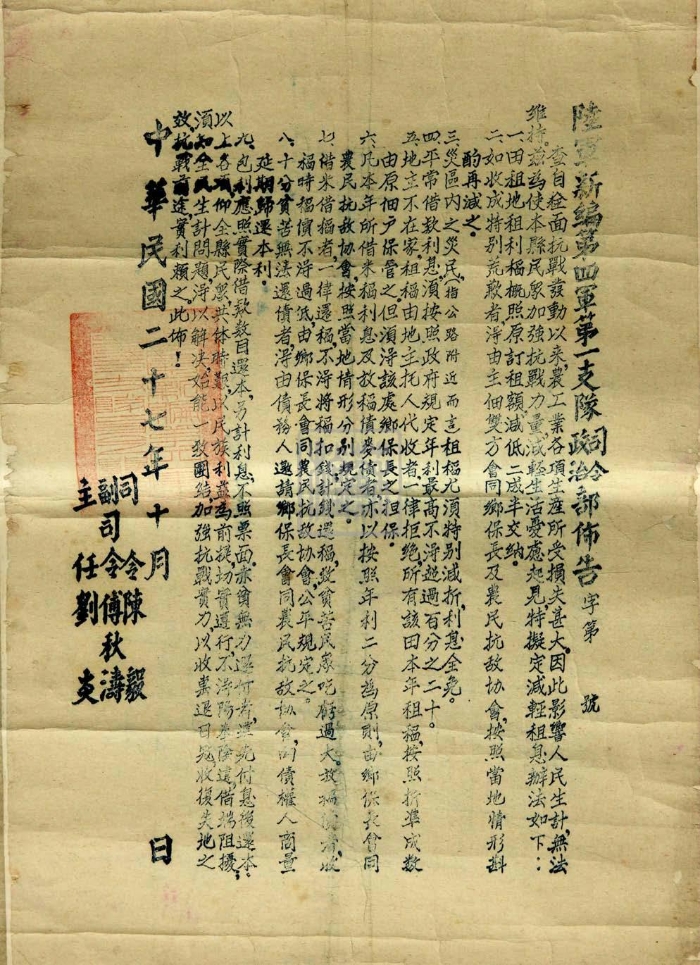 陸軍新編第四軍第一支隊司令政治部佈告 字第 號
查自全面抗戰發動以來,農工業各項生產所受損失甚大,因此影響人民生計,無法
維持,茲為使本縣民眾加強抗戰力量,減輕生活憂慮起見,特擬定減輕租息辦法如下:
一、田租地租利稻概照原訂租額,減低二成半交納。
二、如收成特別荒歉者,得由主佃雙方會同鄉保長及農民抗敵協會,按照當地情形斟
酌再減之。
三、災區內之災民(指公路附近而言)租稻尤須特別減折,利息全免。
四、平常借款利息,須按照政府規定年利最高不得超過百分之二十。
五、地主不在家租稻由地主托人代收者,一律拒絕,所有該田本年租稻,按照折準成數
由原佃戶保管之,但須得該處鄉保長之担保。
六、凡本年所借米稻利息及放稻債麥債者,亦以按照年利二分為原則,由鄉保長會同
農民抗敵協會,按照當地情形分別規定之。
七、借米借稻者一律還稻,不得將稻扣錢計錢還稻,致貧苦民家吃虧過大,放稻債者收
稻時稻價不得過低,由鄉保長會同農民抗敵協會,公平規定之。
八、十分貧苦無法還債者,得由債務人邀請鄉保長會同農民抗敵協會,向債權人商量
延期歸還本利。
九、包利應照實際借款數目還本,另計利息,不照票面,亦貧無力還付者,還先付息後還本。
以上各項仰全縣民眾,共体時艱,以民族利益為前提,切實遵行,不得陽奉陰違,借端阻撓,
須知全民生計問題得以解決,始能一致團結,加強抗戰實力,以收襄退日寇,收復失地之
效,抗戰前途,實利賴之,此佈!
中華民國二十七年十月 日
司令陳毅
副司令傅秋濤
主任劉炎